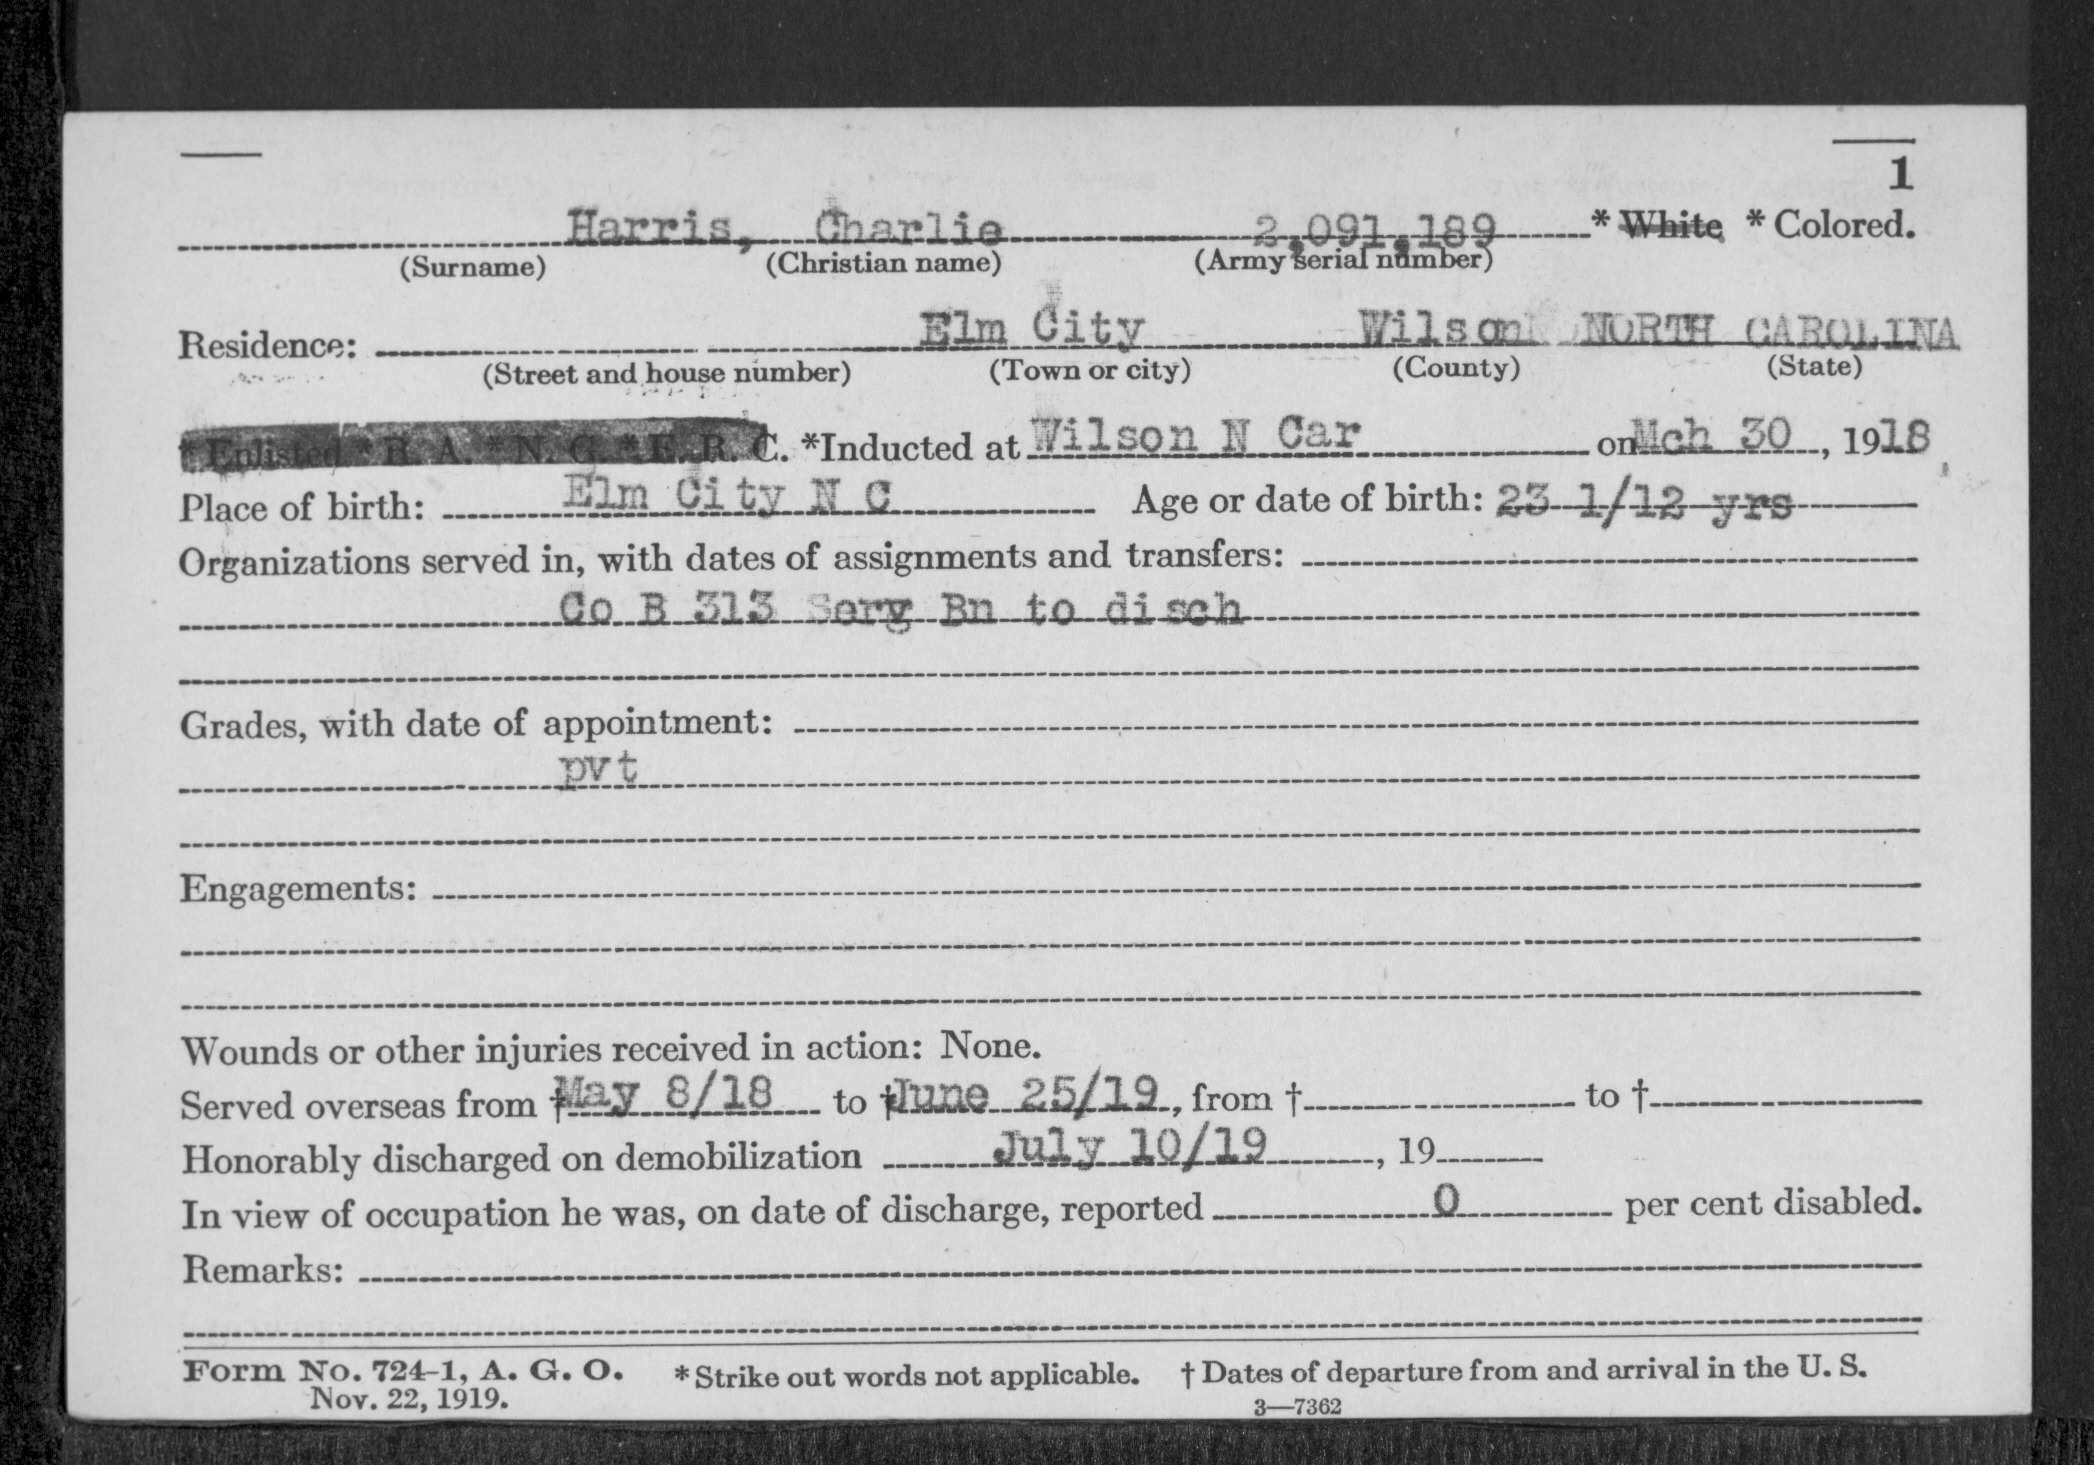 1
Harris, Charlie 2,091,189 * White * Colored.
(Surname) (Christian name) (Army serial number)
Residence: Elm City Wilson NORTH CAROLINA
(Street and house number) (Town or city) (County) (State)
* Enlisted * R. A. * N. G. * E. R. C. *Inducted at Wilson N Car on Mch 30, 1918
Place of birth: Elm City N C Age or date of birth: 23 1/12 yrs
Organizations served in, with dates of assignments and transfers:
Co B 313 Serv Bn to disch
Grades, with date of appointment:
pvt
Engagements:
Wounds or other injuries received in action: None.
Served overseas from † May 8/18 to † June 25/19, from † to †
Honorably discharged on demobilization July 10/19, 19
In view of occupation he was, on date of discharge, reported 0 per cent disabled.
Remarks:
Form No. 724-1, A. G. O. * Strike out words not applicable. † Dates of departure from and arrival in the U. S.
Nov. 22, 1919. 3—7362